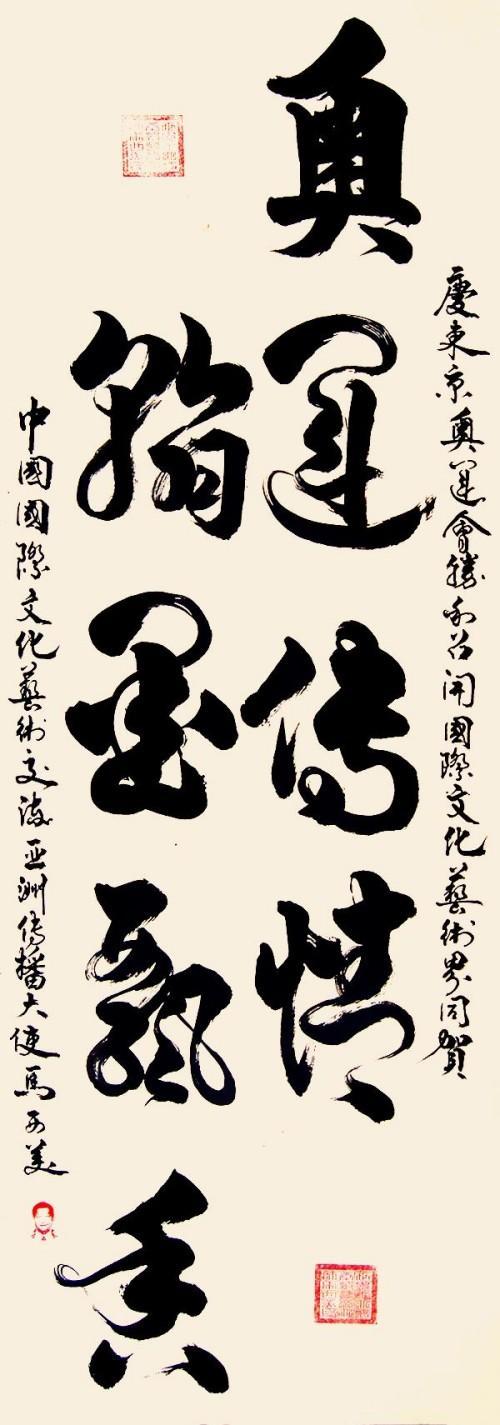 慶東京奧運會勝利召開國際文化藝術界同賀
奧運傳情
翰墨飄香
中國國際文化藝術交流亞洲傳播大使馬西美